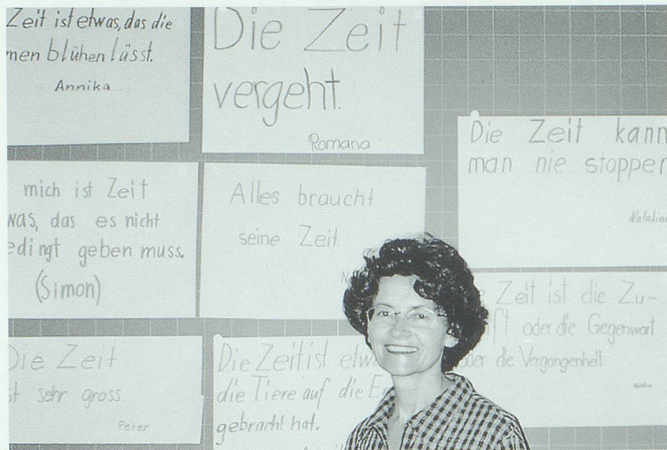 Zeit ist etwas, das die
men blühen lässt.
Annika
Die Zeit
vergeht.
Romana
Die Zeit kann
man nie stoppen
Natalina
mich ist Zeit
was, das es nicht
edingt geben muss.
(Simon)
Alles braucht
seine Zeit.
N
Zeit ist die Zu-
ft oder die Gegenwart
oder die Vergangenheit
Die Zeit
st sehr gross.
Peter
Die Zeit ist etwa
die Tiere auf die E
gebracht hat.